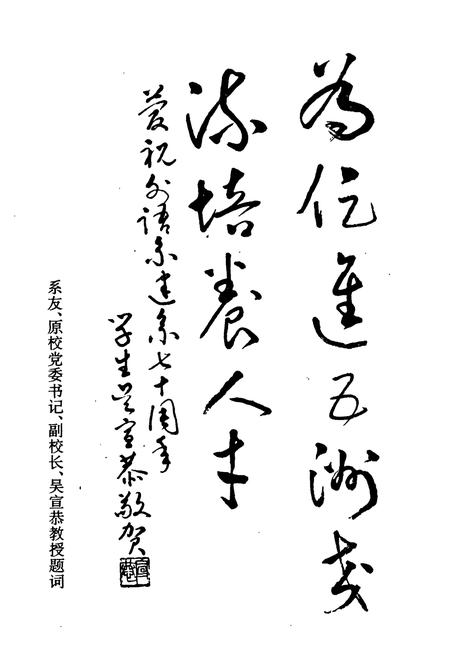 为促進五洲交
流培養人才
庆祝外语系建系七十周年
学生吴宣恭敬贺
宣恭
系友、原校党委书记、副校长、吴宣恭教授题词